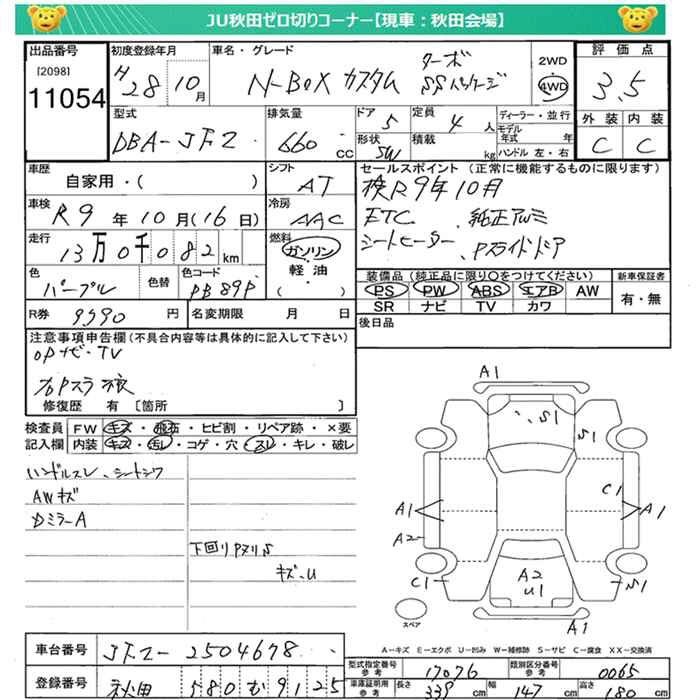 JU秋田ゼロ切りコーナー【現車：秋田会場】
出品番号
[2098]
11054
初度登録年月
H 28 10月
車名・グレード
N-BOX カスタム
ターボ
SSパッケージ
2WD
4WD
評価点
3.5
外装 内装
C C
型式
DBA-JF2
排気量
660 cc
ドア
5
定員
4人
形状
SW
積載
kg
ディーラー・並行
モデル年式 年
ハンドル 左・右
車歴
自家用・( )
シフト
AT
セールスポイント（正常に機能するものに限ります）
検R9年10月
ETC 、純正アルミ
シートヒーター、Pスライドドア
車検
R9年10月(16日)
冷房
AAC
走行
13万0千082km
燃料
ガソリン
軽油
( )
色
パープル
色替
色コード
PB89P
装備品（純品に限り○をつけてください）
PS PW ABS エアB AW
SR ナビ TV カワ
新車保証書
有・無
R券 9990円
名変期限 月 日
後日品
注意事項申告欄（不具合内容等は具体的に記入して下さい）
OPナビ・TV
修復歴 有〔箇所 〕
検査員記入欄
FW キズ・飛石・ヒビ割・リペア跡・×要
内装 キズ・汚レ・コゲ・穴・スレ・キレ・破レ
ハンドルスレ、シートシワ
AWキズ
ドミラーA
下回りPヌリS
キズ・U
A1
S1
S1
C1
A1
A1
A2
C1
A2
U1
S1
A1
スペア
A－キズ E－エクボ U－凹み W－補修跡 S－サビ C－腐食 XX－交換済
車台番号 JF2-2504678
登録番号 秋田 580 か 9125
型式指定番号 参考 17076
類別区分番号 参考 0065
車庫証明用 参考 長さ 339cm 幅 147cm 高さ 180cm